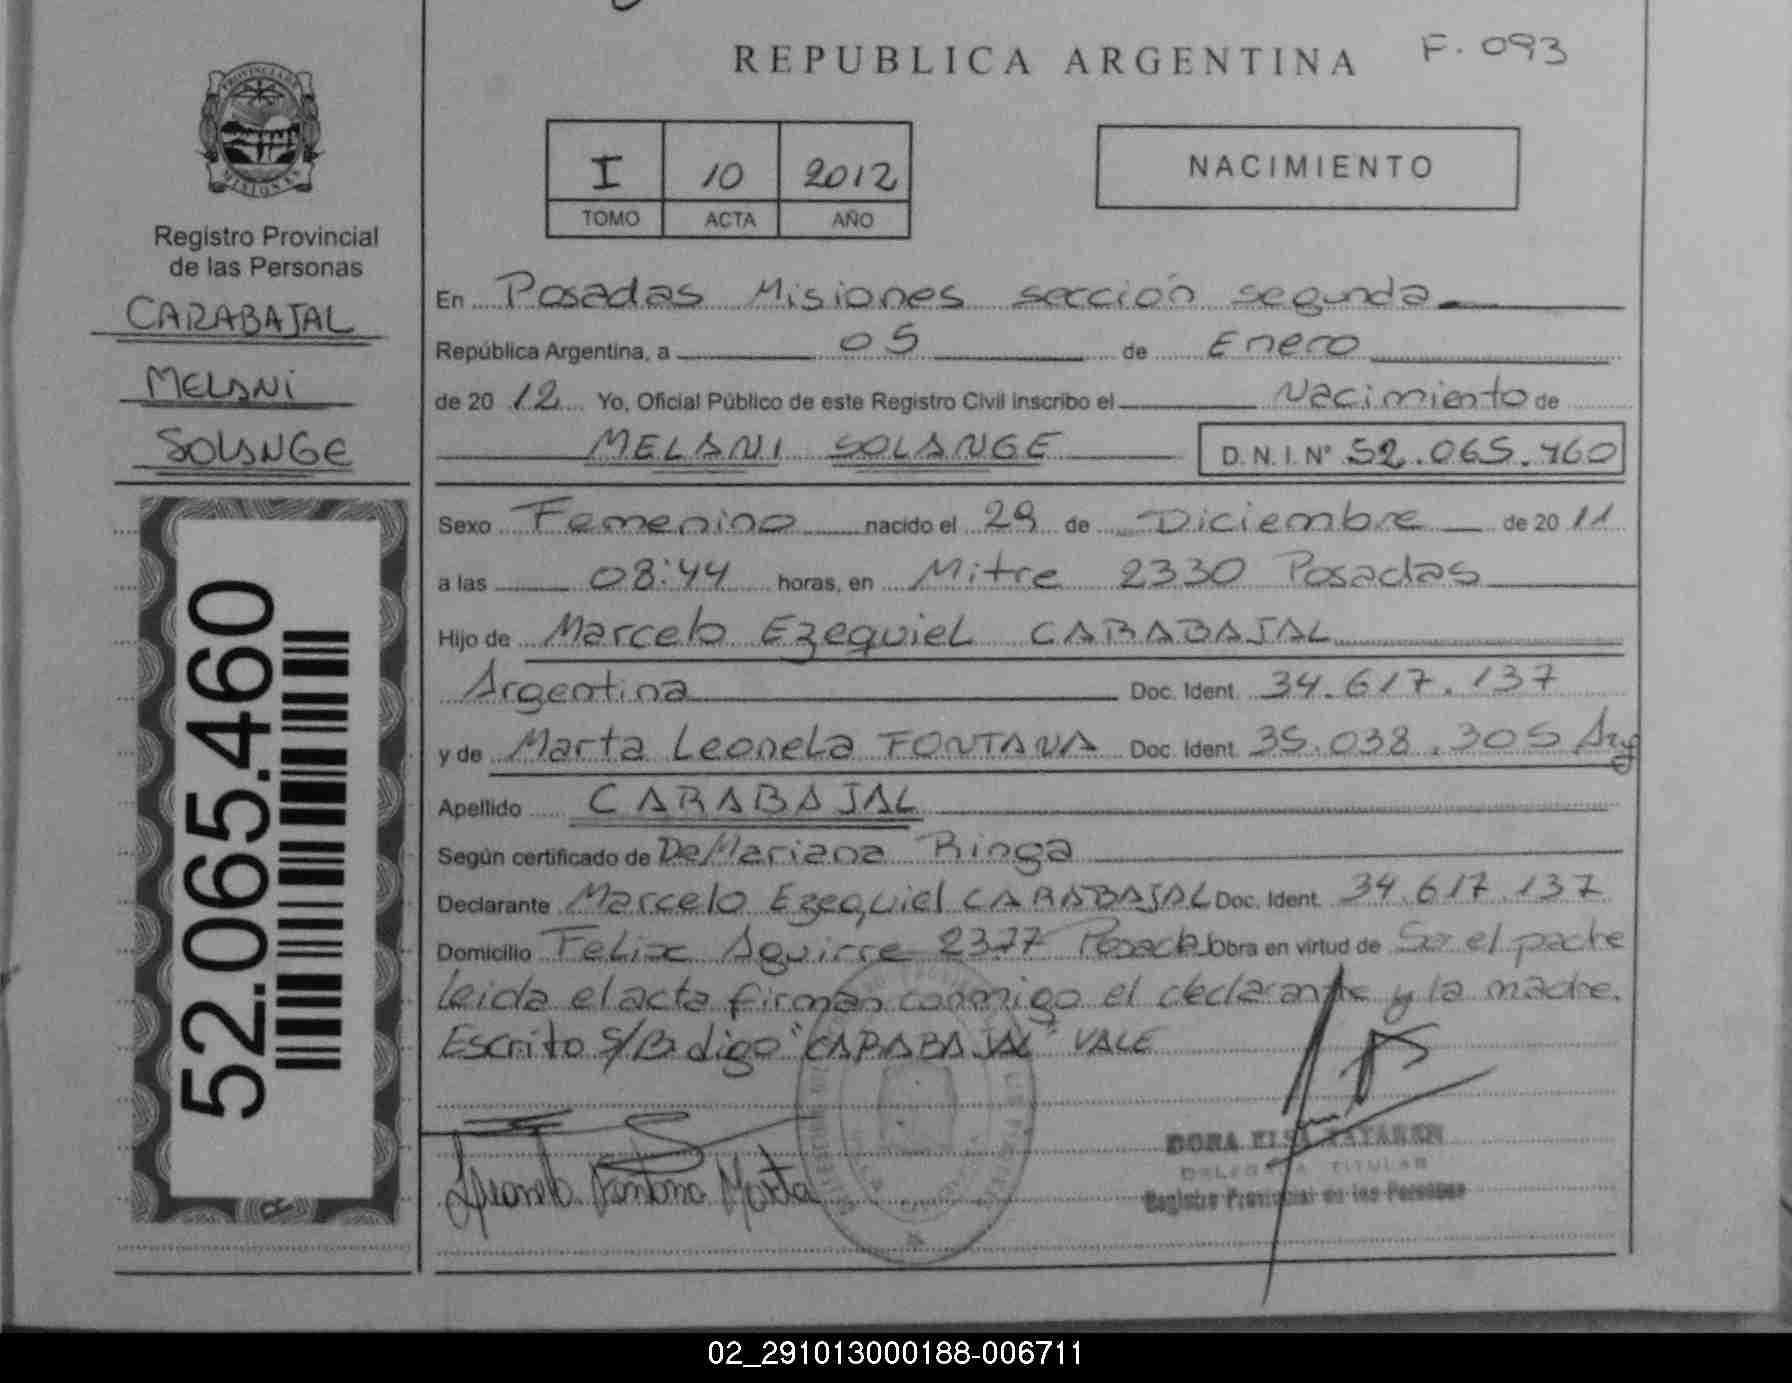 REPUBLICA ARGENTINA F. 093
PROVINCIA DE
MISIONES
Registro Provincial
de las Personas
CARABAJAL
MELANI
SOLANGE
52.065.460
I 10 2012
TOMO ACTA AÑO
NACIMIENTO
En Posadas Misiones sección segunda
República Argentina, a 05 de Enero
de 20 12 Yo, Oficial Público de este Registro Civil inscribo el Nacimiento de
MELANI SOLANGE D.N.I. N° 52.065.460
Sexo Femenino nacido el 29 de Diciembre de 20 11
a las 08:44 horas, en Mitre 2330 Posadas
Hijo de Marcelo Ezequiel CARABAJAL
Argentina Doc. Ident. 34.617.137
y de Marta Leonela FONTANA Doc. Ident. 35.038.305 Arg
Apellido CARABAJAL
Según certificado de De Mariana Ringa
Declarante Marcelo Ezequiel CARABAJAL Doc. Ident. 34.617.137
Domicilio Felix Aguirre 2377 Posadas Obra en virtud de Ser el padre
leida el acta firman conmigo el declarante y la madre.
Escrito S/B digo "CARABAJAL" VALE
Leonela Fontana Marta
DORA ELSA
DELEGADA TITULAR
Registro Provincial de las Personas
02_291013000188-006711